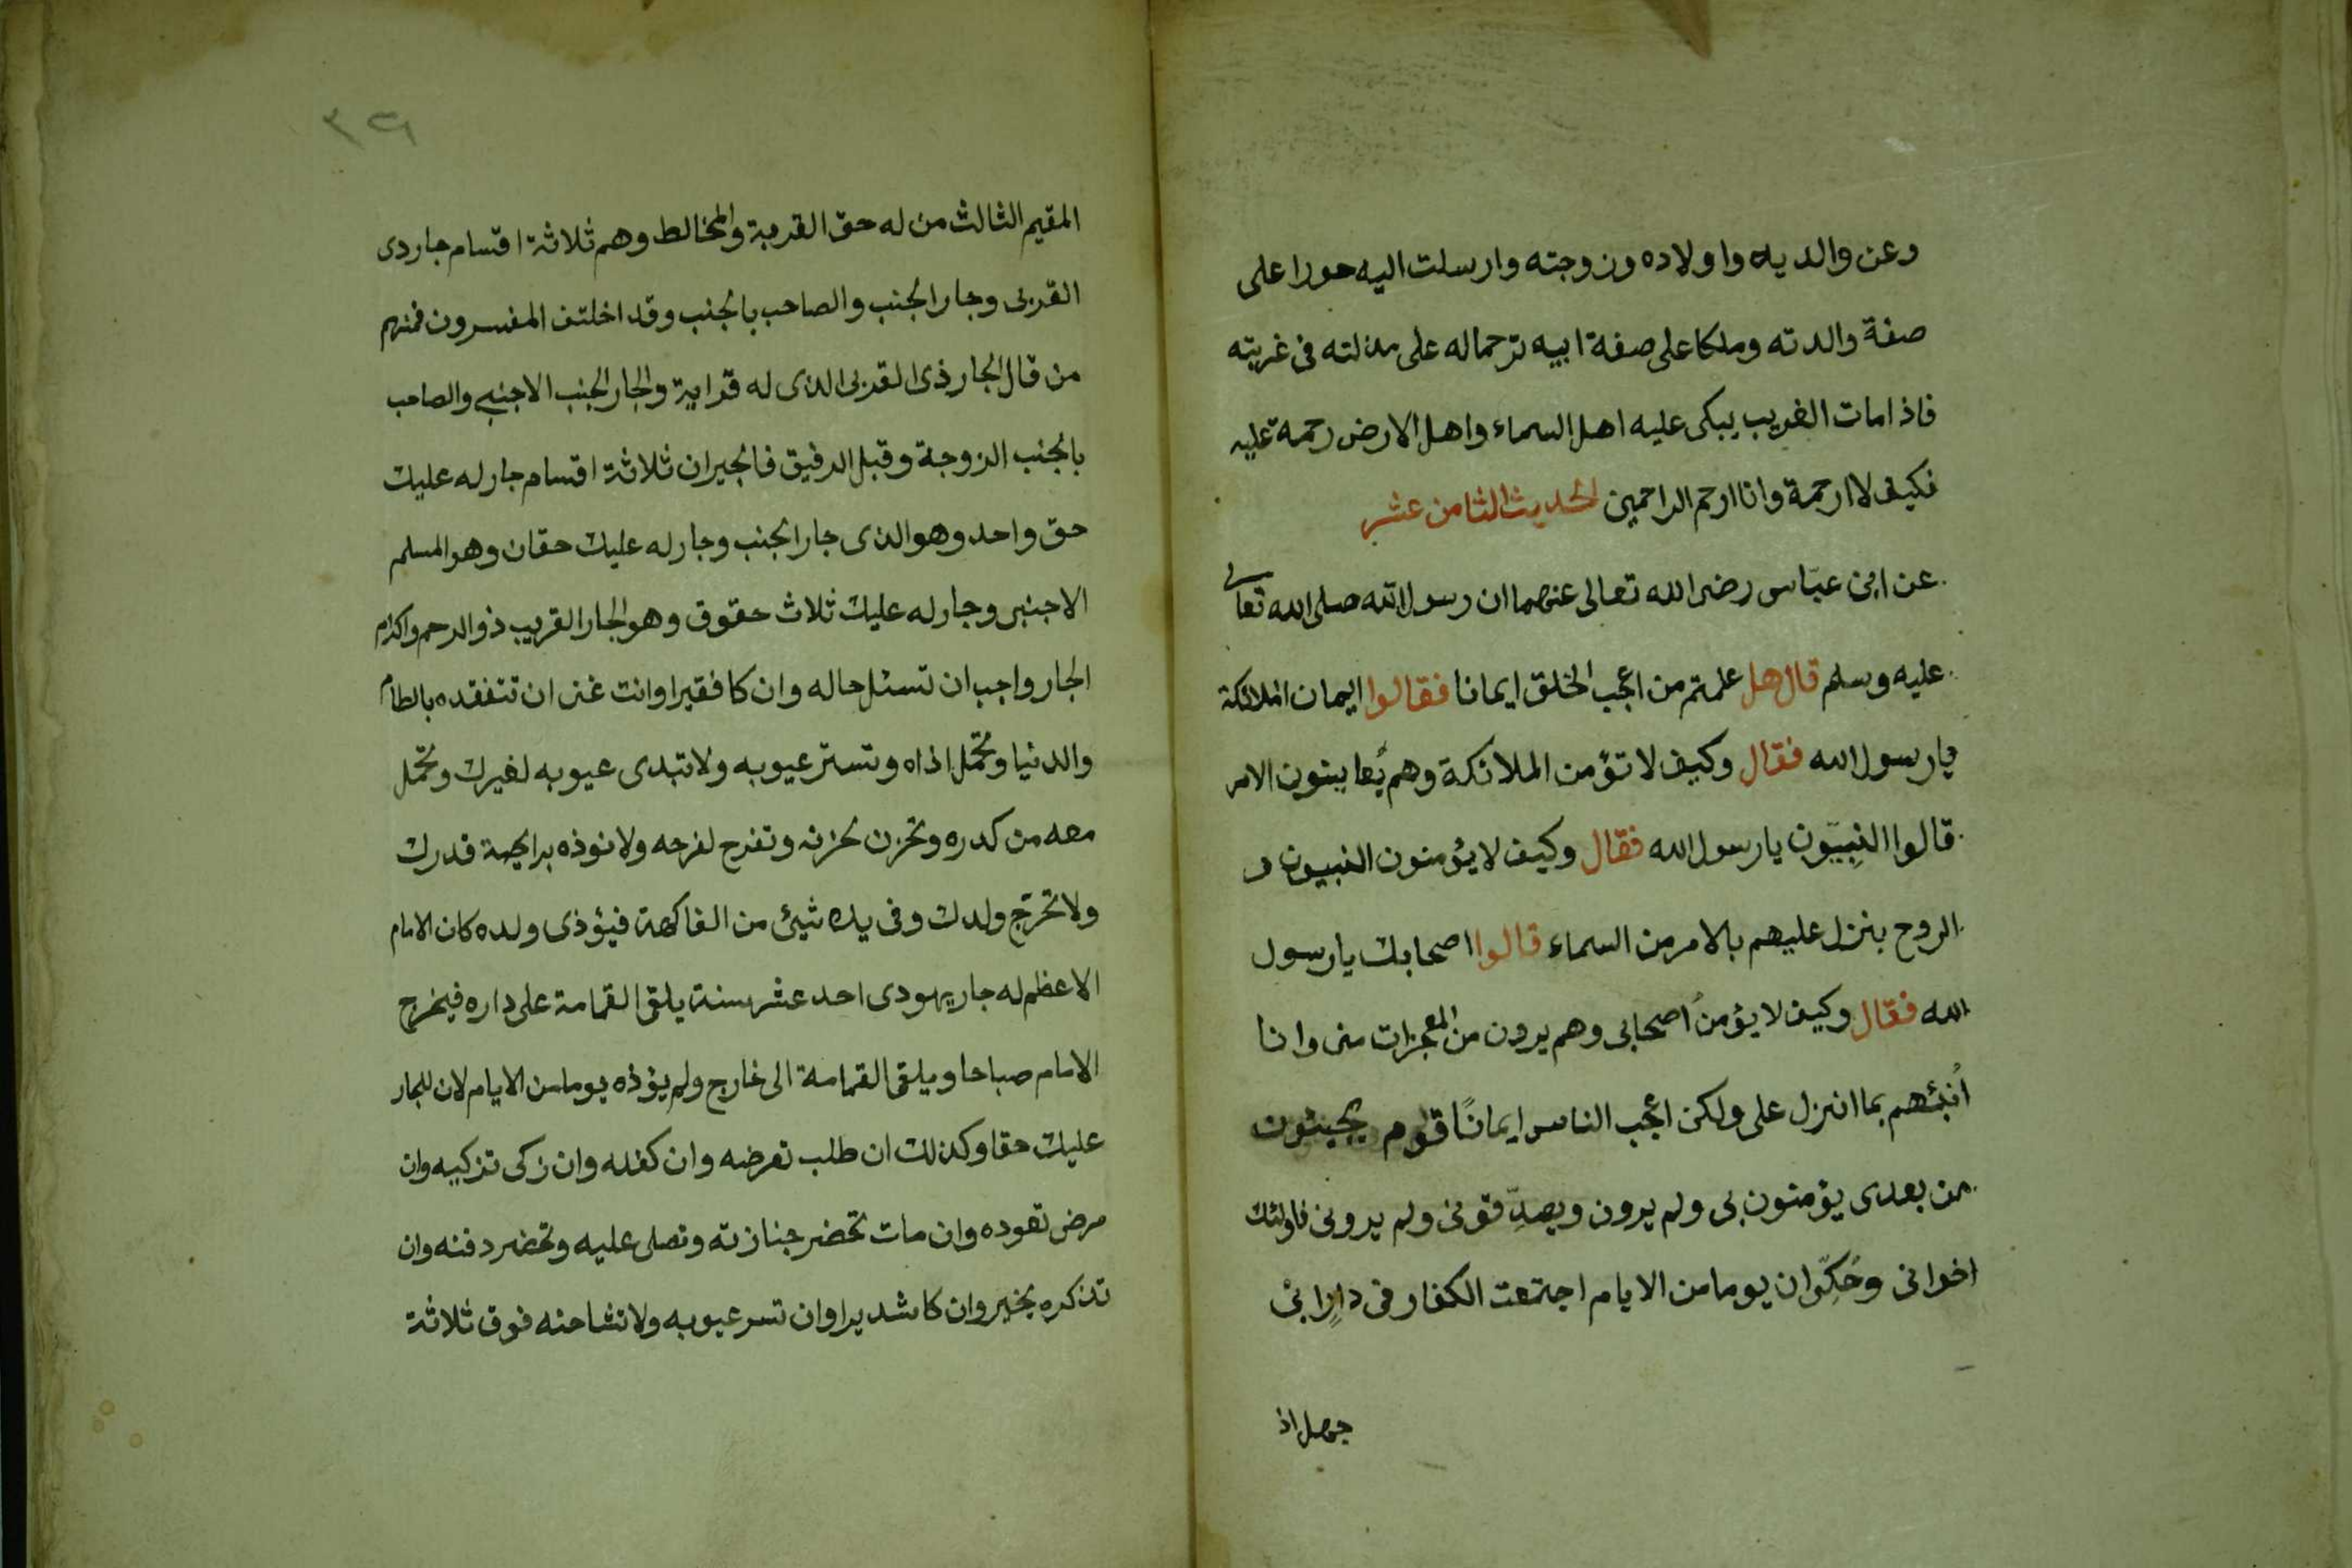 وعن والديه واولاده وزوجته وارسلت اليه حورا على
صفة والدته وملكا على صفة ابيه ترحما له على مذلته فى غربته
فاذا مات الغريب يبكى عليه اهل السماء واهل الارض رحمة عليه
فكيف لا ارحمة وانا ارحم الراحمين الحديث الثامن عشر
عن ابن عبّاس رضى الله تعالى عنهما ان رسول الله صلى الله تعالى
عليه وسلم قال هل علمتم من اعجب الخلق ايمانا فقالوا ايمان الملائكة
يارسول الله فقال وكيف لا تؤمن الملائكة وهم يُعاينون الامر
قالوا النبِيّون يارسول الله فقال وكيف لا يؤمنون النبيون و
الروح ينزل عليهم بالامر من السماء قالوا اصحابك يارسول
الله فقال وكيف لا يؤمنُ اصحابى وهم يرون من المعجزات منى وانا
اُنبئهم بما انزل على ولكن اعجب الناس ايمانًا قوم يجيئون
من بعدى يؤمنون بى ولم يرون ويصدِّقونى ولم يرونى فاولئك
اخوانى وحُكِىّ ان يوما من الايام اجتمعت الكفار فى دارِ ابى
جهل اذ
٣٦
المقيم الثالث من له حق القربة والمخالط وهم ثلاثة اقسام جار ذى
القربى وجار الجنب والصاحب بالجنب وقد اخلتف المفسرون فمنهم
من قال الجار ذى القربى الذى له قرابية والجار الجنب الاجنبى والصاحب
بالجنب الزوجة وقيل الرفيق فالجيران ثلاثة اقسام جار له عليك
حق واحد وهو الذى جار الجنب وجار له عليك حقان وهو المسلم
الاجنبى وجار له عليك ثلاث حقوق وهو الجار القريب ذو الرحم واكرام
الجار واجب ان تسئل حاله وان كا فقيرا وانت غنى ان تتفقده بالطام
والدنيا وتحمل اذاه وتستر عيوبه ولا تبدى عيوبه لغيرك وتحمل
معه من كدره وتحزن لحزنه وتفرح لفرحه ولا نوذه برايحة قدرك
ولا تخرج ولدك وفى يده شيئ من الفاكهة فيؤذى ولده كان الامام
الاعظم له جار يهودى احد عشر سنة يلقى القمامة على داره فيخرج
الامام صباحا ويلقى القمامة الى خارج ولم يؤذه يوما من الايام لان للجار
عليك حقا وكذلك ان طلب تقرضه وان كفله وان زكى تزكيه وان
مرض تعوده وان مات تحضر جنازته وتصلى عليه وتحضر دفنه وان
تذكره بخير وان كا شديرا وان تسر عيوبه ولا تشاحنه فوق ثلاثة